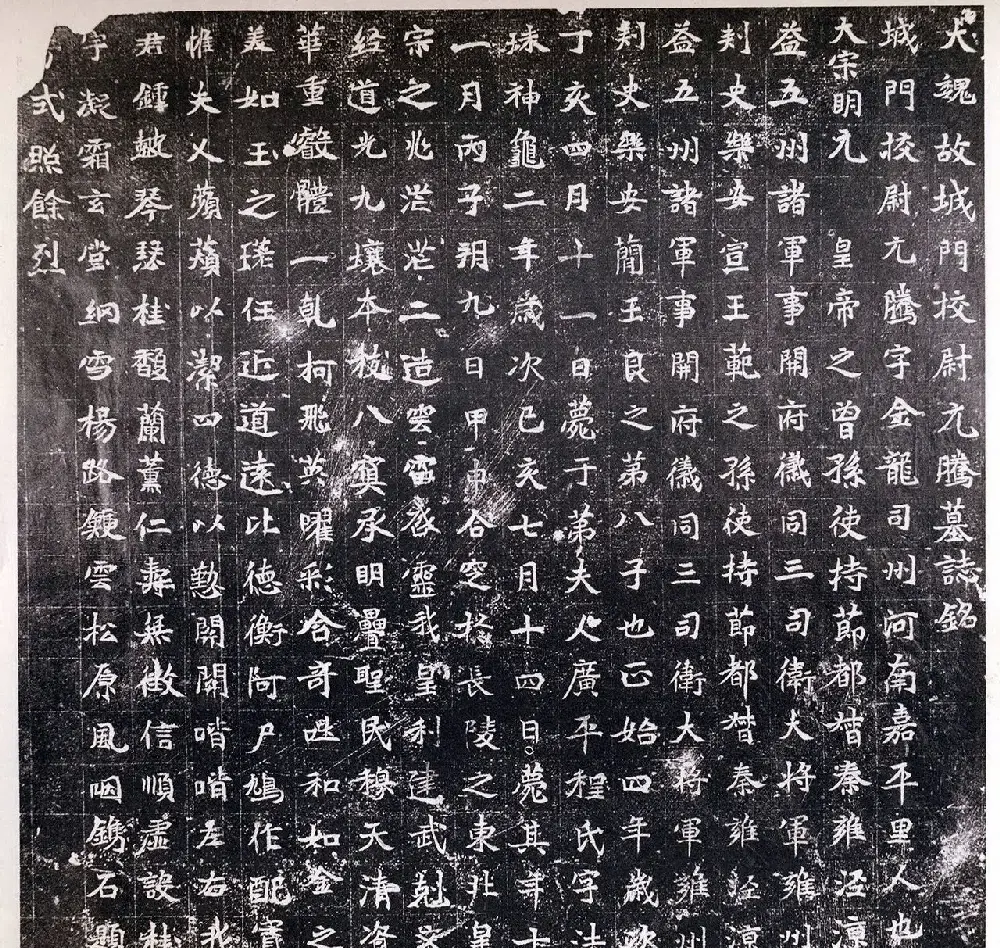 大魏故城門校尉元騰墓誌銘
城門校尉元騰字金龍司州河南嘉平里人也
大宗明元皇帝之曾孫使持節都督秦雍涇涼
益五州諸軍事開府儀同三司衛大將軍雍州
刾史樂安宣王範之孫使持節都督秦雍涇
益五州諸軍事開府儀同三司衛大將軍雍州
刾史樂安簡王良之第八子也正始四年歲次
丁亥四月十一日薨于第夫人廣平程氏字法
珠神龜二年歲次己亥七月十四日薨其年十
一月丙子朔九日甲申合窆於長陵之東北皇
宗之兆茫茫二造雲雷啓靈我皇利建武剋
經道光九壤本枝八寘承明疊聖民穆天清資
華重磤體一乹柯飛英曜彩含哥誕和如金之
美如玉之瑳任近道遠比德衡阿尸鳩作配寔
惟夫人蘋蘩以潔四德以懃關關喈喈左右我
君鍾鼓琴瑟桂馥蘭薰仁壽無徵信順虛設桂
字凝霜玄堂網雪楊路鏁雲松原風咽鐫石題
芳式照餘烈